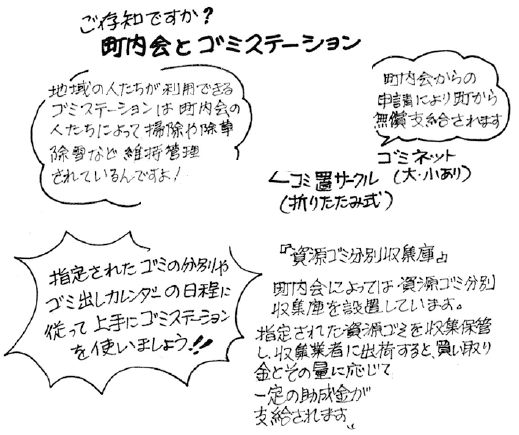 ご存知ですか?
町内会とゴミステーション
地域の人たちが利用できる
ゴミステーションは町内会の
人たちによって掃除や除草
除雪など維持管理
されているんですよ!
町内会からの
申請により町から
無償支給されます
ゴミネット
(大・小あり)
←ゴミ置サークル
(折りたたみ式)
指定されたゴミの分別や
ゴミ出しカレンダーの日程に
従って上手にゴミステーション
を使いましょう!!
『資源ゴミ分別収集庫』
町内会によっては資源ゴミ分別
収集庫を設置しています。
指定された資源ゴミを収集保管
し、収集業者に出荷すると、買い取り
金とその量に応じて
一定の助成金が
支給されます。